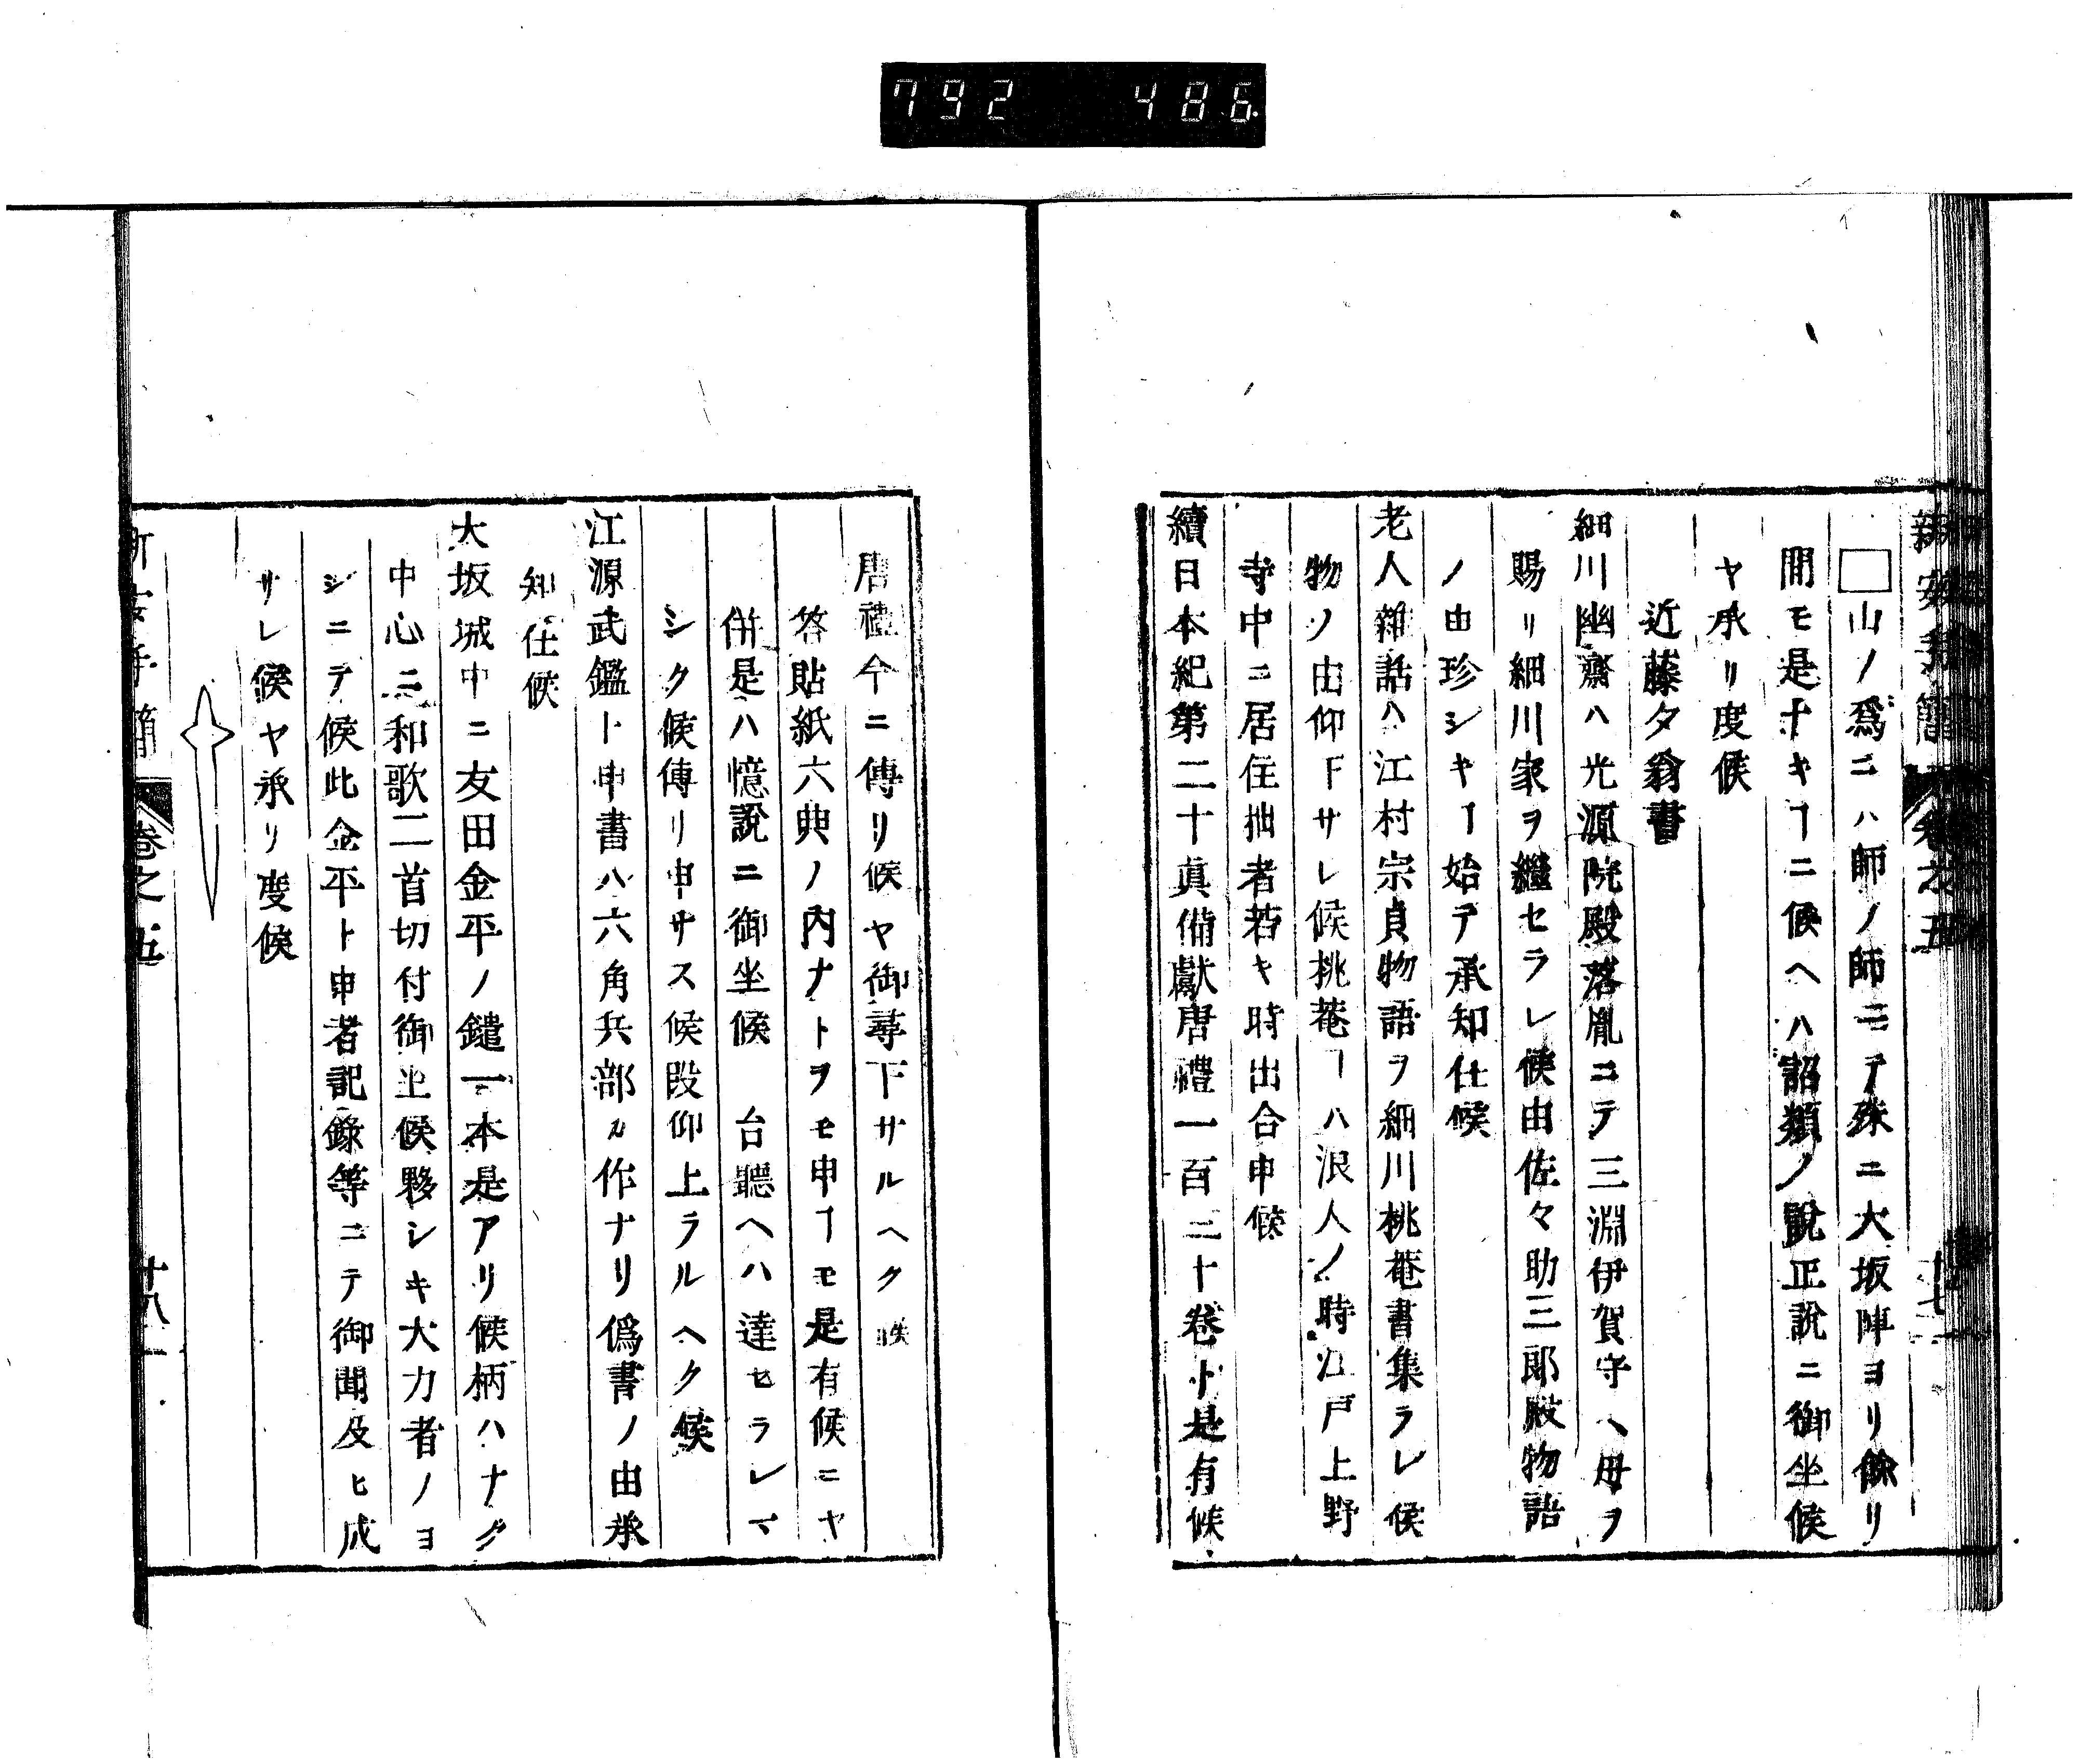 792 486
新安手簡 卷之五 十七
□山ノ爲ニハ師ノ師ニテ殊ニ大坂陣ヨリ餘リ
間モ是ナキヿニ候ヘハ詔類ノ說正說ニ御坐候
ヤ承リ度候
近藤夕翁書
細川幽齋ハ光源院殿落胤ニテ三淵伊賀守ヘ母ヲ
賜リ細川家ヲ繼セラレ候由佐々助三郎殿物語
ノ由珍シキヿ始テ承知仕候
老人雜話ハ江村宗貞物語ヲ細川桃菴書集ラレ候
物ノ由仰下サレ候桃菴ヿハ浪人ノ時江戸上野
寺中ニ居住拙者若キ時出合申候
續日本紀第二十眞備獻唐禮一百二十卷ト是有候
唐禮今ニ傳リ候ヤ御尋下サルヘク候
答貼紙六典ノ內ナトヲモ申ヿモ是有候ニヤ
併是ハ憶說ニ御坐候　台聽ヘハ達セラレマ
シク候傳リ申サス候段仰上ラルヘク候
江源武鑑ト申書ハ六角兵部カ作ナリ僞書ノ由承
知仕候
大坂城中ニ友田金平ノ鑓一本是アリ候柄ハナク
中心ニ和歌二首切付御坐候夥シキ大力者ノヨ
シニテ候此金平ト申者記錄等ニテ御聞及ヒ成
サレ候ヤ承リ度候
新安手簡 卷之五 十八